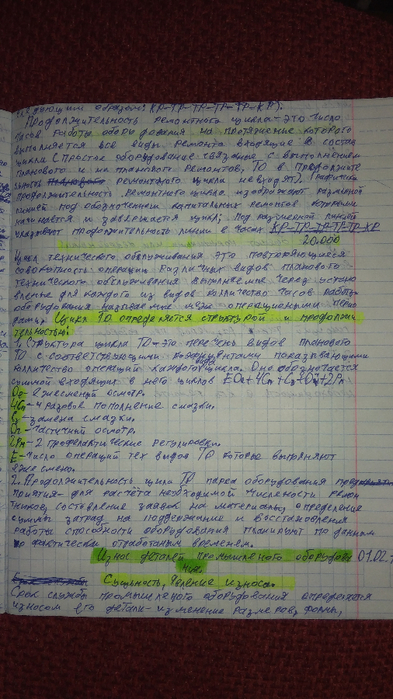 следующим образом: КР-ТР-ТР-ТР-ТР-КР).
Продолжительность ремонтного цикла - это число
часов работы оборудования на протяжение которого
выполняется все виды ремонта входящие в состав
цикла (Простое оборудование связаное с выполнением
планового и не планового ремонтов, ТО в продолжите
льность ремонтного цикла не входят). Графически
продолжительность ремонтного цикла изображают размерной
линией под обозначением капитальных ремонтов которыми
начинается и завершается цикл; Под размерной линией
указывают продолжительность линии в часах КР-ТР-ТР-ТР-ТР-КР
20.000
Цикл технического обслуживания это повторяющиеся
совокупность операции различных видов планового
технического обслуживания выполняемые через устано
вленые для каждого из видов количество часов работы
оборудования называемые меж-операционными пери
одами. Цикл ТО определяется структурой и продолжи
тельностью.
1. Структура цикла ТО - это перечень видов планового
ТО с соответствующими коэффициентами показывающими
количество операций каждого вида цикла. Оно обозначается
суммой входящих в него циклов
Ое - Ежесменый осмотр.
4Сп - 4 разовое пополнение смазки.
Сз - замена смазки.
Оч - Частичный осмотр.
2Рп - 2 Профилактические регулировки.
Е - Число операций тех видов ТО которые выполняют
ежесмено.
2. Продолжительность цикла ТО парка оборудования пред
приятия - для расчёта необходимой численности ремон
тников, составление заявок на материалы, определение
суммы затрат на поддержание и восстановления
работы способности оборудования планируют по данным
о фактически отработаным временем.
Износ деталей промышленого оборудова 01.02.
ния.
Сущность, явление износа.
Срок службы промышленого оборудования определяется
износом его детали - изменение размеров, формы,